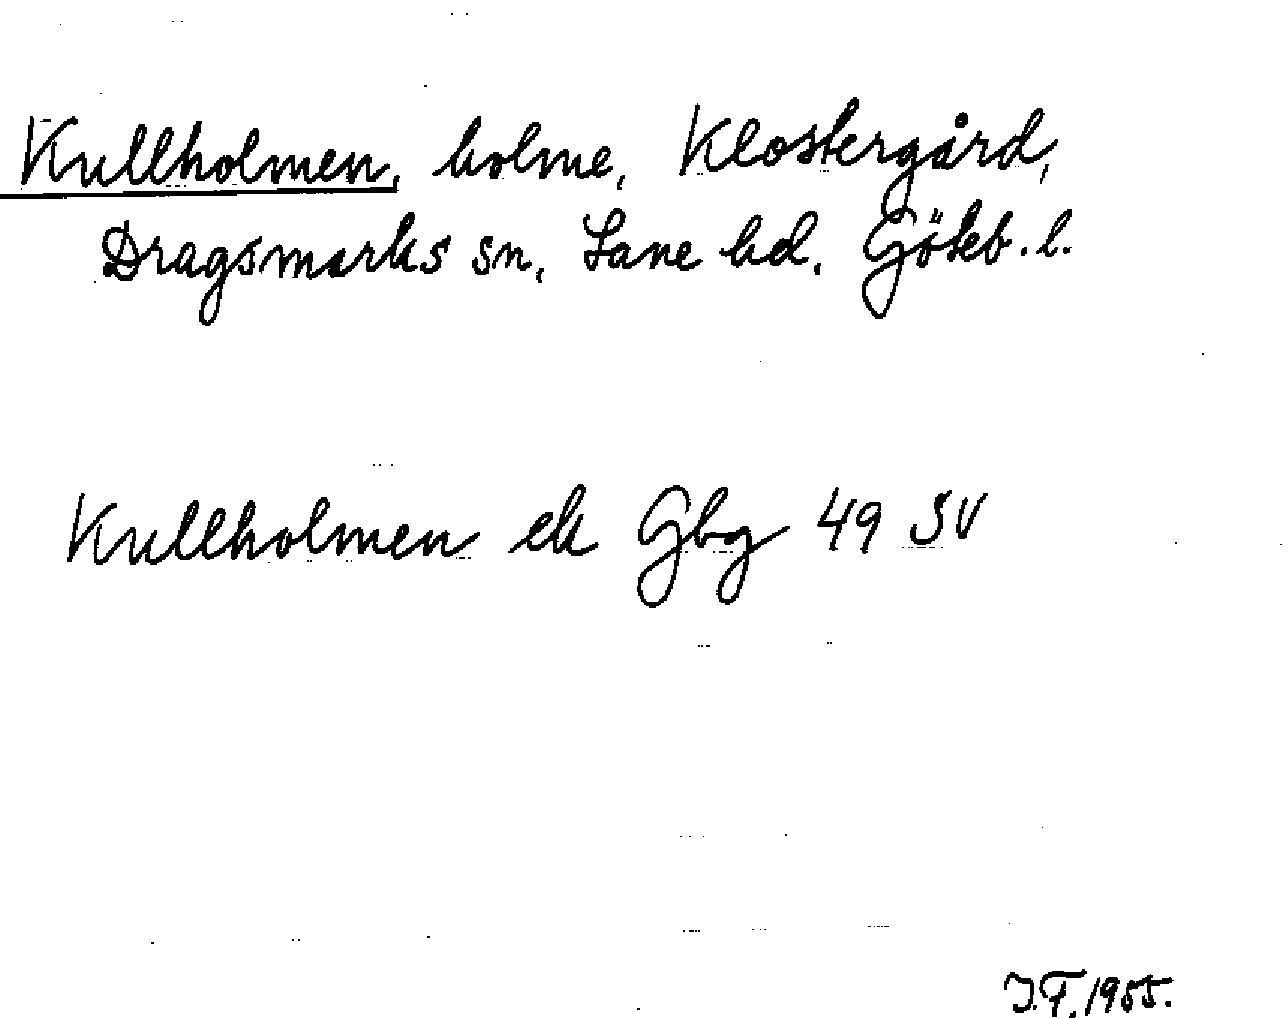 Kullholmen, holme, Klostergård,
Dragsmarks sn, Lane hd, Göteb. l.
Kullholmen ek Gbg 49 SV
J.F. 1955.